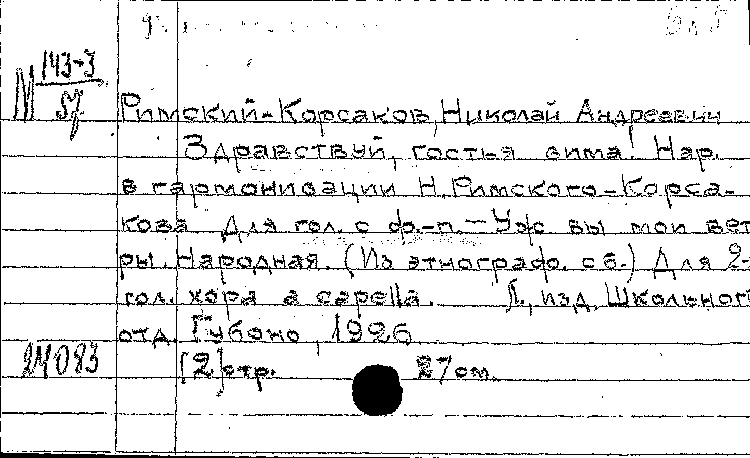 М 143-3
Римский-Корсаков, Николай Андреевич
Здравствуй, гостья зима! Нар.
в гармонизации Н.Римского-Корса-
кова Для гол. с ф.-п.—Уж вы мои вет
ры. Народная. (Из этнограф. сб.) Для 2-
гол. хора a capella. Л., изд. Школьног
отд. Губоно, 1926
24083
[2]стр. 27см.